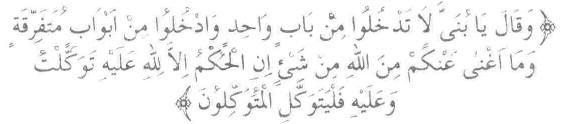 ﴿ وَقَالَ يَا بُنَيَّ لَا تَدْخُلُوا مِنْ بَابٍ وَاحِدٍ وَادْخُلُوا مِنْ أَبْوَابٍ مُتَفَرِّقَةٍ
وَمَا اَغْنٰى عَنْكُمْ مِنَ اللهِ مِنْ شَئٍْ اِنِ الْحُكْمُ اِلاَّ لِلّهِ عَلَيْهِ تَوَكَّلْتُ
وَعَلَيْهِ فَلْيَتَوَكَّلِ الْمُتَوَكِّلُونَ ﴾